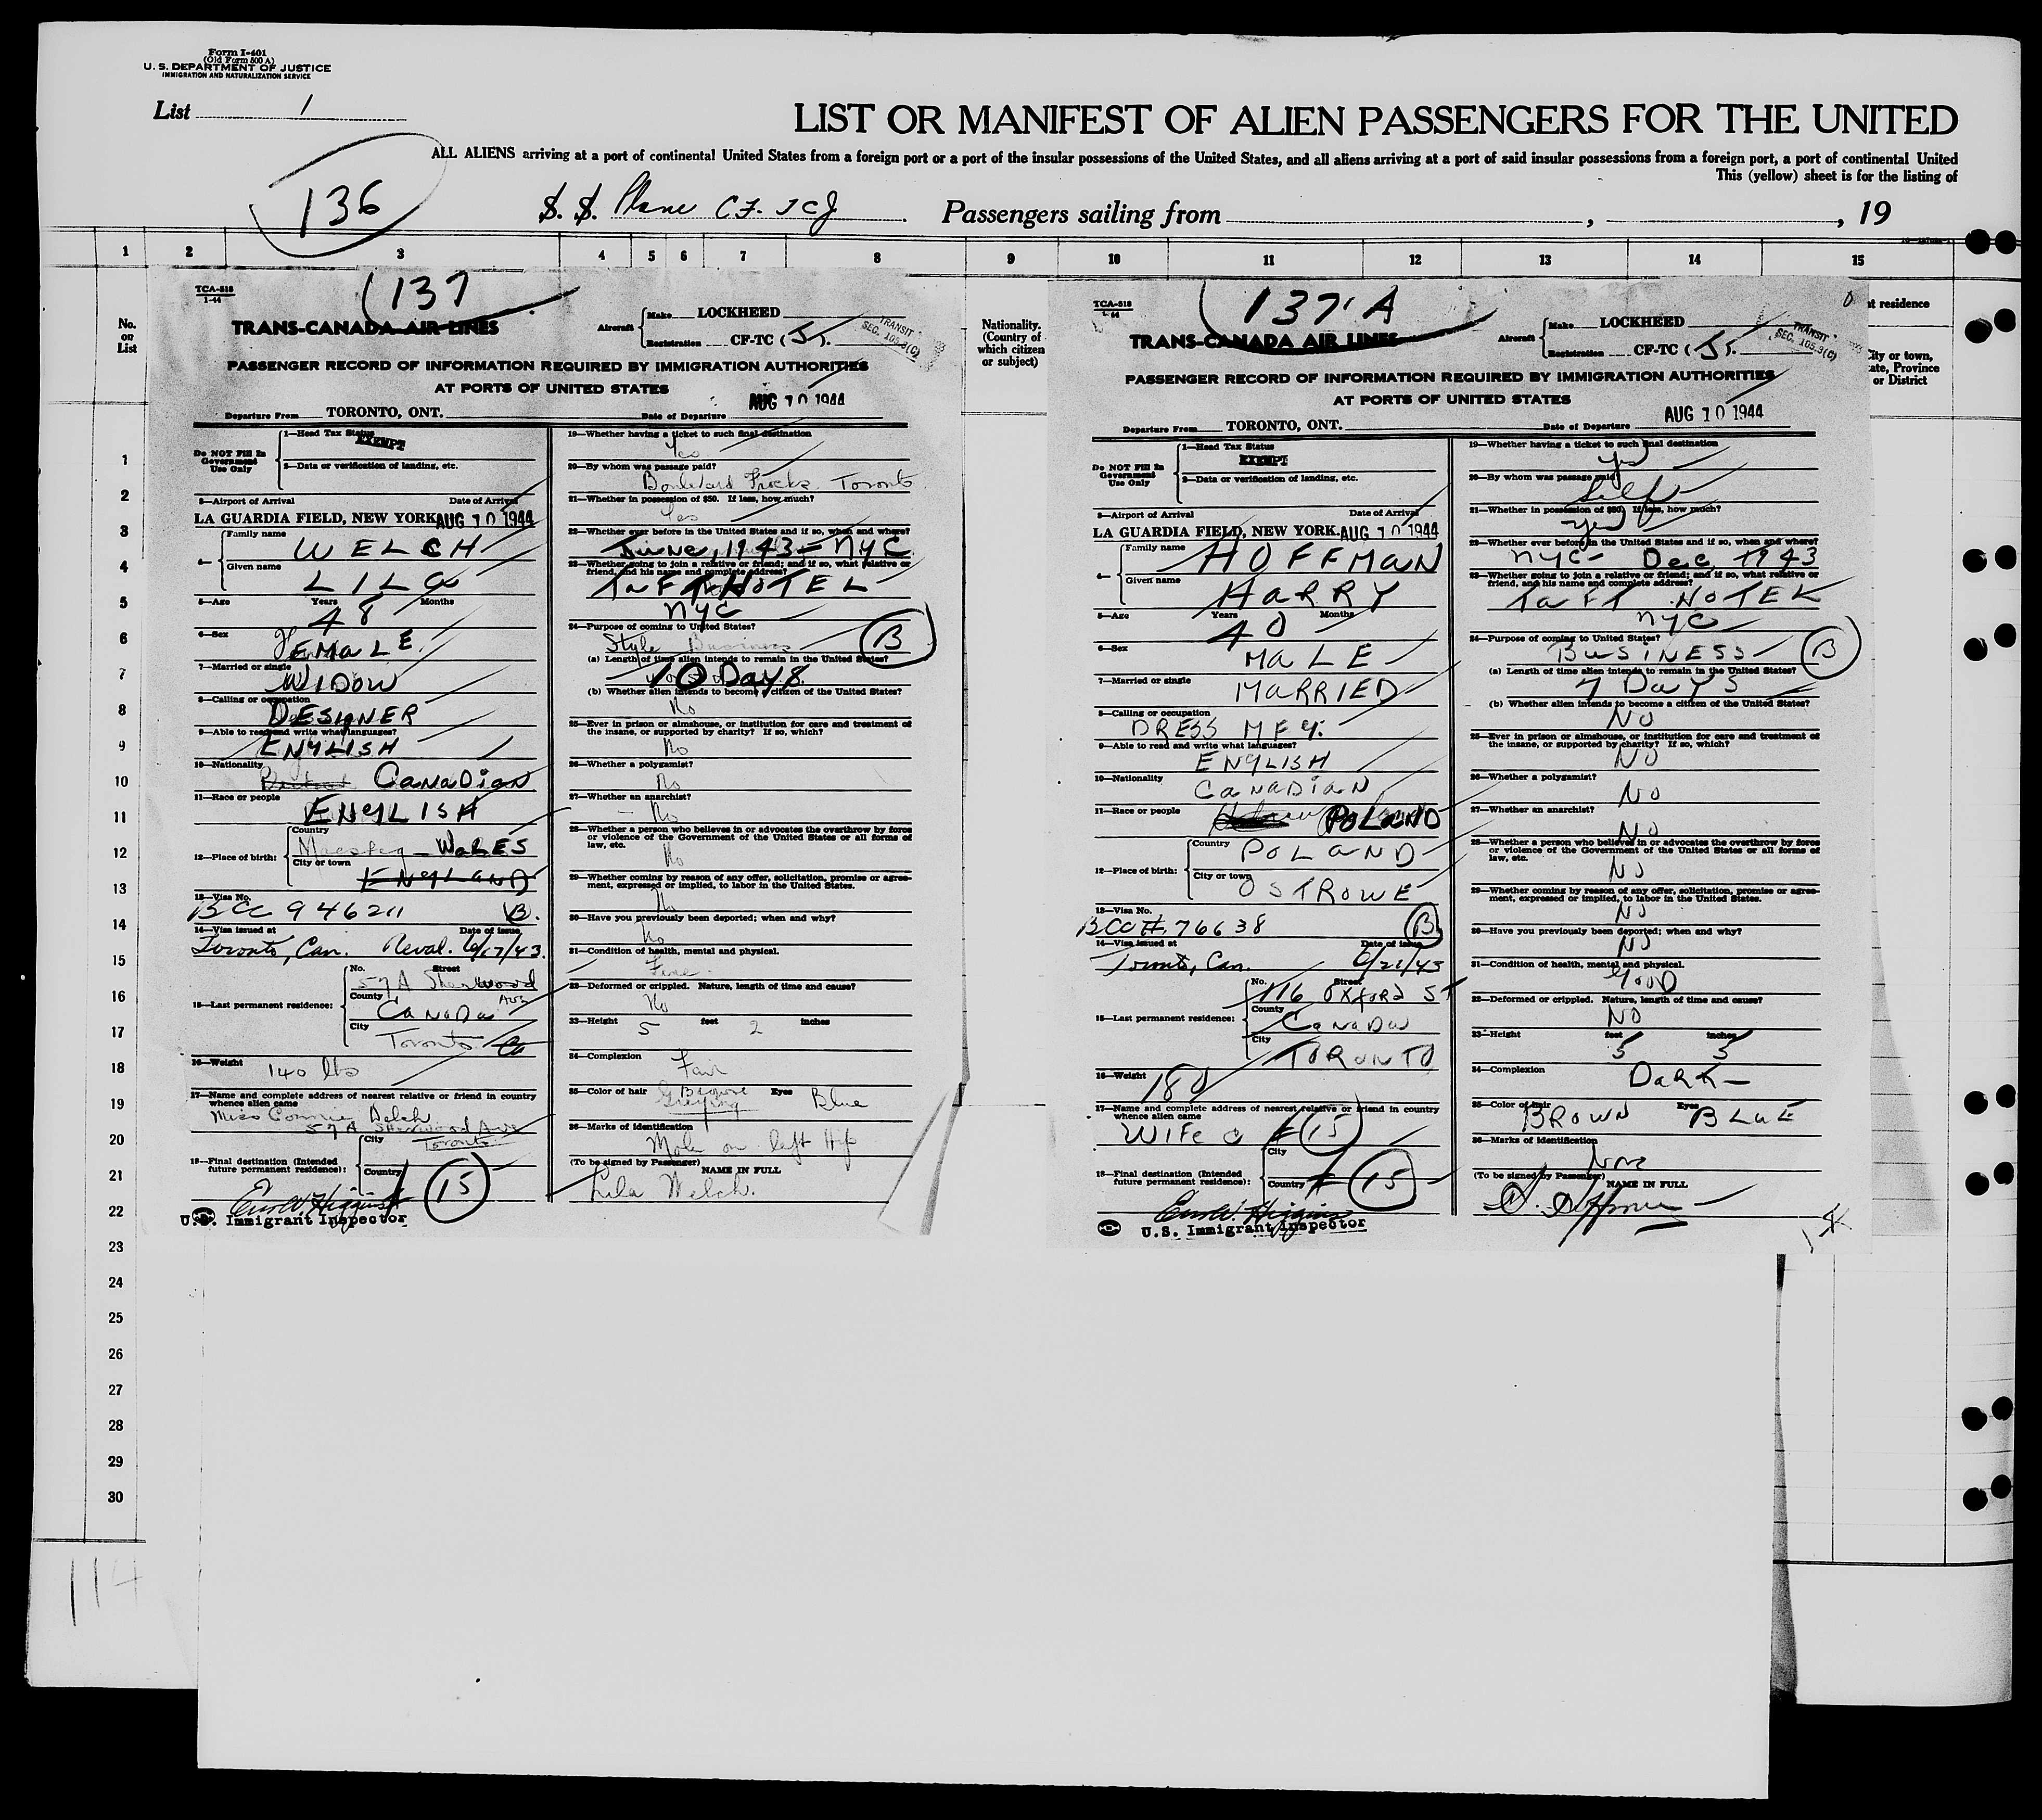 Form I-401
(Old Form 500 A)
U. S. DEPARTMENT OF JUSTICE
IMMIGRATION AND NATURALIZATION SERVICE
List 1
LIST OR MANIFEST OF ALIEN PASSENGERS FOR THE UNITED
ALL ALIENS arriving at a port of continental United States from a foreign port or a port of the insular possessions of the United States, and all aliens arriving at a port of said insular possessions from a foreign port, a port of continental United
This (yellow) sheet is for the listing of
136
S. S. Plane CF. TCJ Passengers sailing from , , 19
1 2 3 4 5 6 7 8 9 10 11 12 13 14 15
No.
on
List
Nationality.
(Country of
which citizen
or subject)
at residence
City or town,
State, Province
or District
137
TCA-818
1-44
TRANS-CANADA AIR LINES
Aircraft Make LOCKHEED
Registration CF-TC (J).
TRANSIT
SEC. 105.3(C)
PASSENGER RECORD OF INFORMATION REQUIRED BY IMMIGRATION AUTHORITIES
AT PORTS OF UNITED STATES
AUG 10 1944
Departure From TORONTO, ONT. Date of Departure
Do NOT Fill In
Government
Use Only
1—Head Tax Status
EXEMPT
2—Data or verification of landing, etc.
3—Airport of Arrival Date of Arrival
LA GUARDIA FIELD, NEW YORK. AUG 10 1944
4— Family name WELCH
Given name LILA
5—Age Years 48 Months
6—Sex FEMALE
7—Married or single WIDOW
8—Calling or occupation DESIGNER
9—Able to read and write what languages?
ENGLISH
10—Nationality CANADIAN
11—Race or people ENGLISH
12—Place of birth: Country Maesteg - WALES
City or town ENGLAND
13—Visa No.
BCC 946211 B.
14—Visa issued at Date of issue
Toronto, Can. Reval. 6/17/43.
15—Last permanent residence: No. Street
57A Sherwood Ave
County CANADA
City Toronto
16—Weight 140 lbs
17—Name and complete address of nearest relative or friend in country
whence alien came
Miss Connie Welch
57A Sherwood Ave
Toronto
18—Final destination (Intended
future permanent residence): City
Country
15
U.S. Immigrant Inspector
19—Whether having a ticket to such final destination
Yes
20—By whom was passage paid?
Boulevard Frocks. Toronto
21—Whether in possession of $50. If less, how much?
Yes
22—Whether ever before in the United States and if so, when and where?
June, 1943 - NYC
23—Whether going to join a relative or friend; and if so, what relative or
friend, and his name and complete address?
TAFT HOTEL
NYC
24—Purpose of coming to United States?
Style Business
B
(a) Length of time alien intends to remain in the United States?
10 Days
(b) Whether alien intends to become a citizen of the United States?
No
25—Ever in prison or almshouse, or institution for care and treatment of
the insane, or supported by charity? If so, which?
No
26—Whether a polygamist?
No
27—Whether an anarchist?
No
28—Whether a person who believes in or advocates the overthrow by force
or violence of the Government of the United States or all forms of
law, etc.
No
29—Whether coming by reason of any offer, solicitation, promise or agree-
ment, expressed or implied, to labor in the United States.
No
30—Have you previously been deported; when and why?
No
31—Condition of health, mental and physical.
Fine
32—Deformed or crippled. Nature, length of time and cause?
No
33—Height 5 feet 2 inches
34—Complexion Fair
35—Color of hair Brown Greying Eyes Blue
36—Marks of identification
Mole on left Hip
(To be signed by Passenger) NAME IN FULL
Lila Welch.
137 A
TCA-818
1-44
TRANS-CANADA AIR LINES
Aircraft Make LOCKHEED
Registration CF-TC (J).
TRANSIT
SEC. 105.3(C)
PASSENGER RECORD OF INFORMATION REQUIRED BY IMMIGRATION AUTHORITIES
AT PORTS OF UNITED STATES
AUG 10 1944
Departure From TORONTO, ONT. Date of Departure
Do NOT Fill In
Government
Use Only
1—Head Tax Status
EXEMPT
2—Data or verification of landing, etc.
3—Airport of Arrival Date of Arrival
LA GUARDIA FIELD, NEW YORK. AUG 10 1944
4— Family name HOFFMAN
Given name HARRY
5—Age Years 40 Months
6—Sex MALE
7—Married or single MARRIED
8—Calling or occupation
DRESS MFG.
9—Able to read and write what languages?
ENGLISH
10—Nationality CANADIAN
11—Race or people POLAND
12—Place of birth: Country POLAND
City or town OSTROWE
13—Visa No.
BCC #. 76638 B
14—Visa issued at Date of issue
Toronto, Can. 6/21/43
15—Last permanent residence: No. Street
116 OXFORD ST
County CANADA
City TORONTO
16—Weight 180
17—Name and complete address of nearest relative or friend in country
whence alien came
WIFE 15
18—Final destination (Intended
future permanent residence): City
Country
15
U.S. Immigrant Inspector
19—Whether having a ticket to such final destination
Yes
20—By whom was passage paid?
Self
21—Whether in possession of $50. If less, how much?
Yes
22—Whether ever before in the United States and if so, when and where?
NYC - Dec 1943
23—Whether going to join a relative or friend; and if so, what relative or
friend, and his name and complete address?
TAFT HOTEL
NYC
24—Purpose of coming to United States?
BUSINESS
B
(a) Length of time alien intends to remain in the United States?
7 DAYS
(b) Whether alien intends to become a citizen of the United States?
NO
25—Ever in prison or almshouse, or institution for care and treatment of
the insane, or supported by charity? If so, which?
NO
26—Whether a polygamist?
NO
27—Whether an anarchist?
NO
28—Whether a person who believes in or advocates the overthrow by force
or violence of the Government of the United States or all forms of
law, etc.
NO
29—Whether coming by reason of any offer, solicitation, promise or agree-
ment, expressed or implied, to labor in the United States.
NO
30—Have you previously been deported; when and why?
NO
31—Condition of health, mental and physical.
GOOD
32—Deformed or crippled. Nature, length of time and cause?
NO
33—Height 5 feet 5 inches
34—Complexion DARK
35—Color of hair BROWN Eyes BLUE
36—Marks of identification
None
(To be signed by Passenger) NAME IN FULL
1
2
3
4
5
6
7
8
9
10
11
12
13
14
15
16
17
18
19
20
21
22
23
24
25
26
27
28
29
30
114